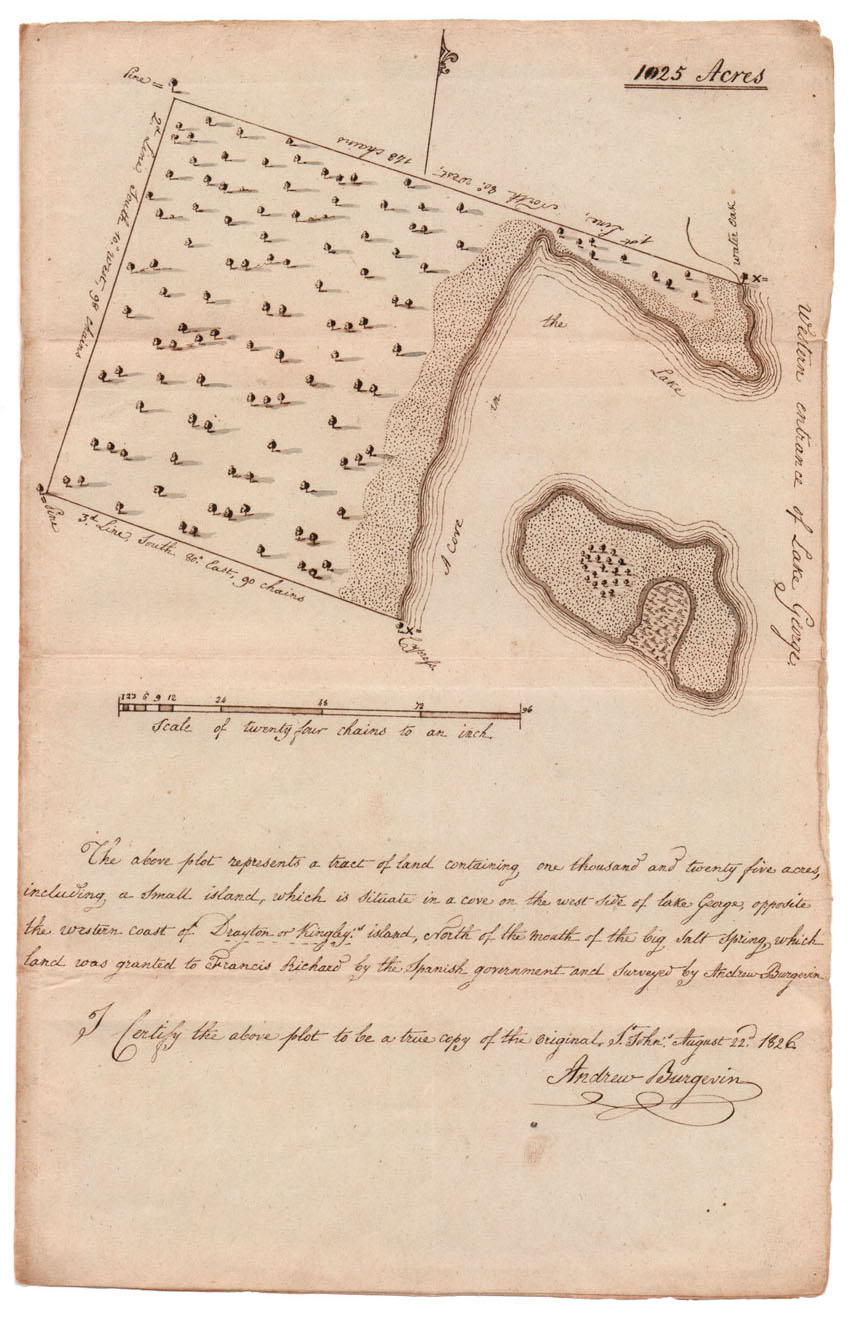 1025 Acres
Pine =
1st Line, North 80° West, 148 chains
water oak
X =
2d Line, South 10° West, 98 chains
Western entrance of Lake George,
the
Lake
in
A Cove
= Pine
3d Line, South 80° East, 90 chains
X =
Cypress
1 2 3 6 9 12 24 48 72 96
Scale of twenty four chains to an inch
The above plot represents a tract of land containing, one thousand and twenty five acres,
including, a small island, which is situate in a cove on the west side of lake George, opposite
the western coast of Drayton or Kingley's island, North of the mouth of the big Salt Spring, which
land was granted to Francis Richard by the Spanish government and surveyed by Andrew Burgevin
I Certify the above plot to be a true copy of the original, St John's August 22d 1826
Andrew Burgevin